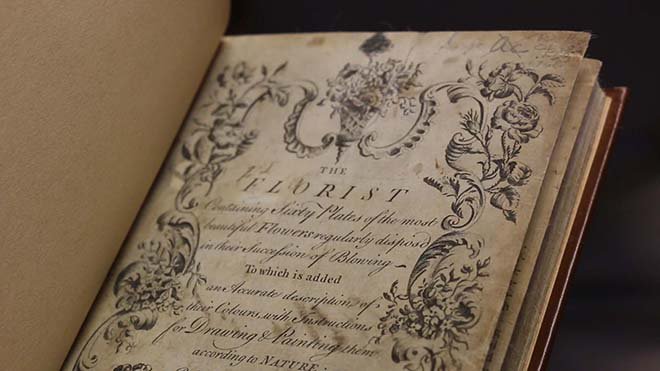 THE
FLORIST
Containing Sixty Plates of the most
beautiful Flowers regularly dispos'd
in their Succession of Blowing
To which is added
an Accurate description of
their Colours, with Instructions
for Drawing & Painting them
according to NATURE: